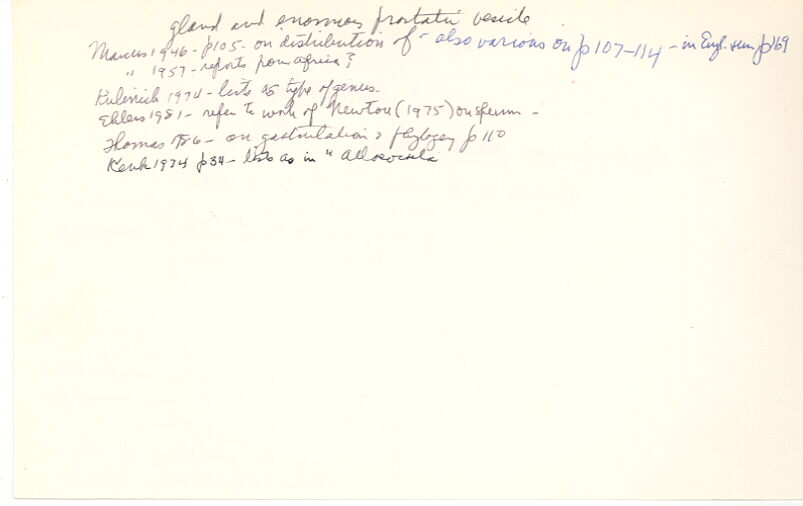 gland and enormous prostatic vesicle
Marcus 1946 - p105 - on distribution of - also various on p107-114 - in Engl. sum p169
" 1957 - reports from africa?
1974 - lists as type of genus.
Ehlers 1981 - refer to work of Newton (1975) on sperm -
Thomas 1986 - on gastrulation & phylogeny p110
Kenk 1974 p34 - lists as in "